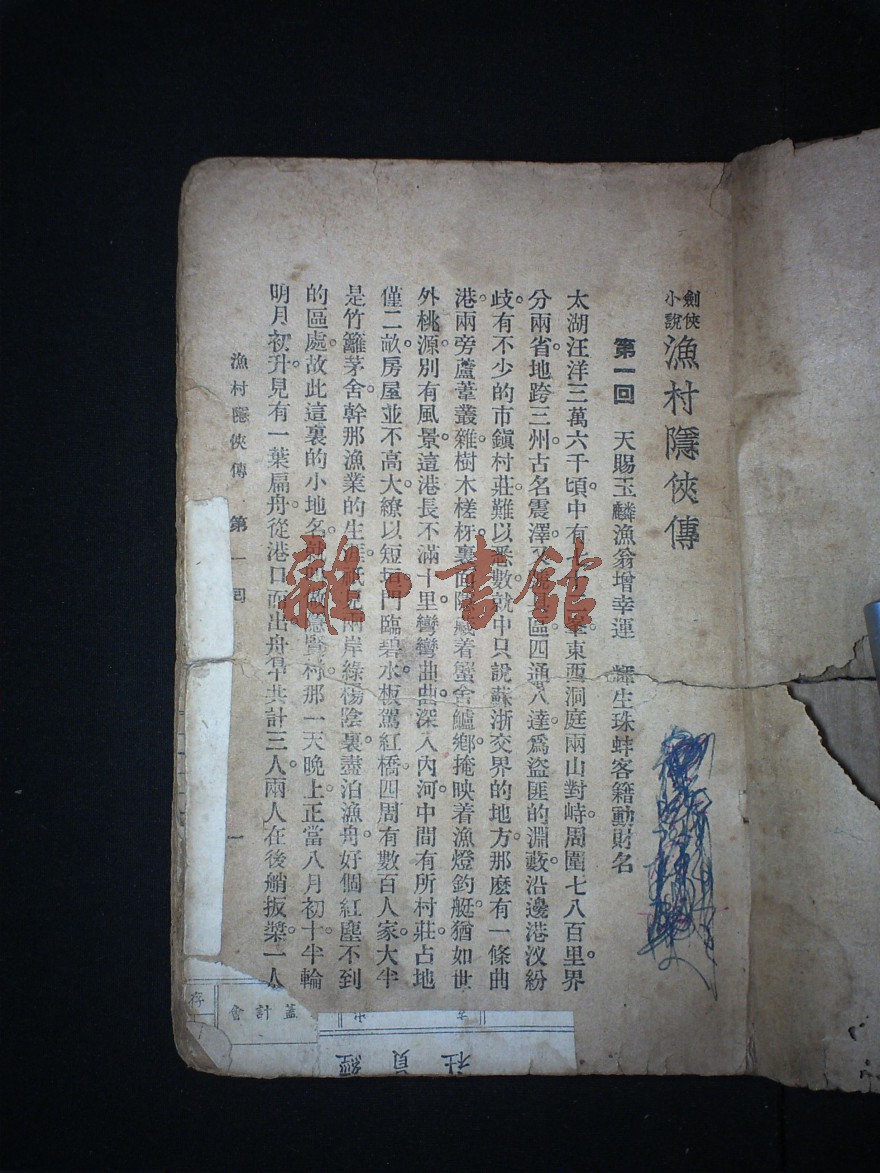 劍俠小說
漁村隱俠傳
第一回 天賜玉麟漁翁增幸運 生珠蚌客籍動財名
太湖汪洋三萬六千頃。中有七十二峯東西洞庭兩山對峙周圍七八百里。界
分兩省地跨三州。古名震澤 區四通八達。爲盜匪的淵藪。沿邊港汊紛
歧。有不少的市鎮村莊。難以悉數。就中只說蘇浙交界的地方。那麼有一條曲
港。兩旁蘆葦叢雜。樹木槎枒。裏面隱藏着蟹舍鱸鄉。掩映着漁燈釣艇。猶如世
外桃源。別有風景。這港長不滿十里。彎彎曲曲。深入內河。中間有所村莊。占地
僅二畝。房屋並不高大。繚以短垣。門臨碧水。板駕紅橋。四周有數百人家。大半
是竹籬茅舍。幹那漁業的生涯。祇見兩岸綠楊陰裏。盡泊漁舟。好個紅塵不到
的區處。故此這裏的小地名。就 隱賢村。那一天晚上。正當八月初十。半輪
明月初升。見有一葉扁舟。從港口而出。舟中共計三人。兩人在後艄扳槳。一人
漁村隱俠傳 第一回 一
雜·書館
存
會計蓋
社員經